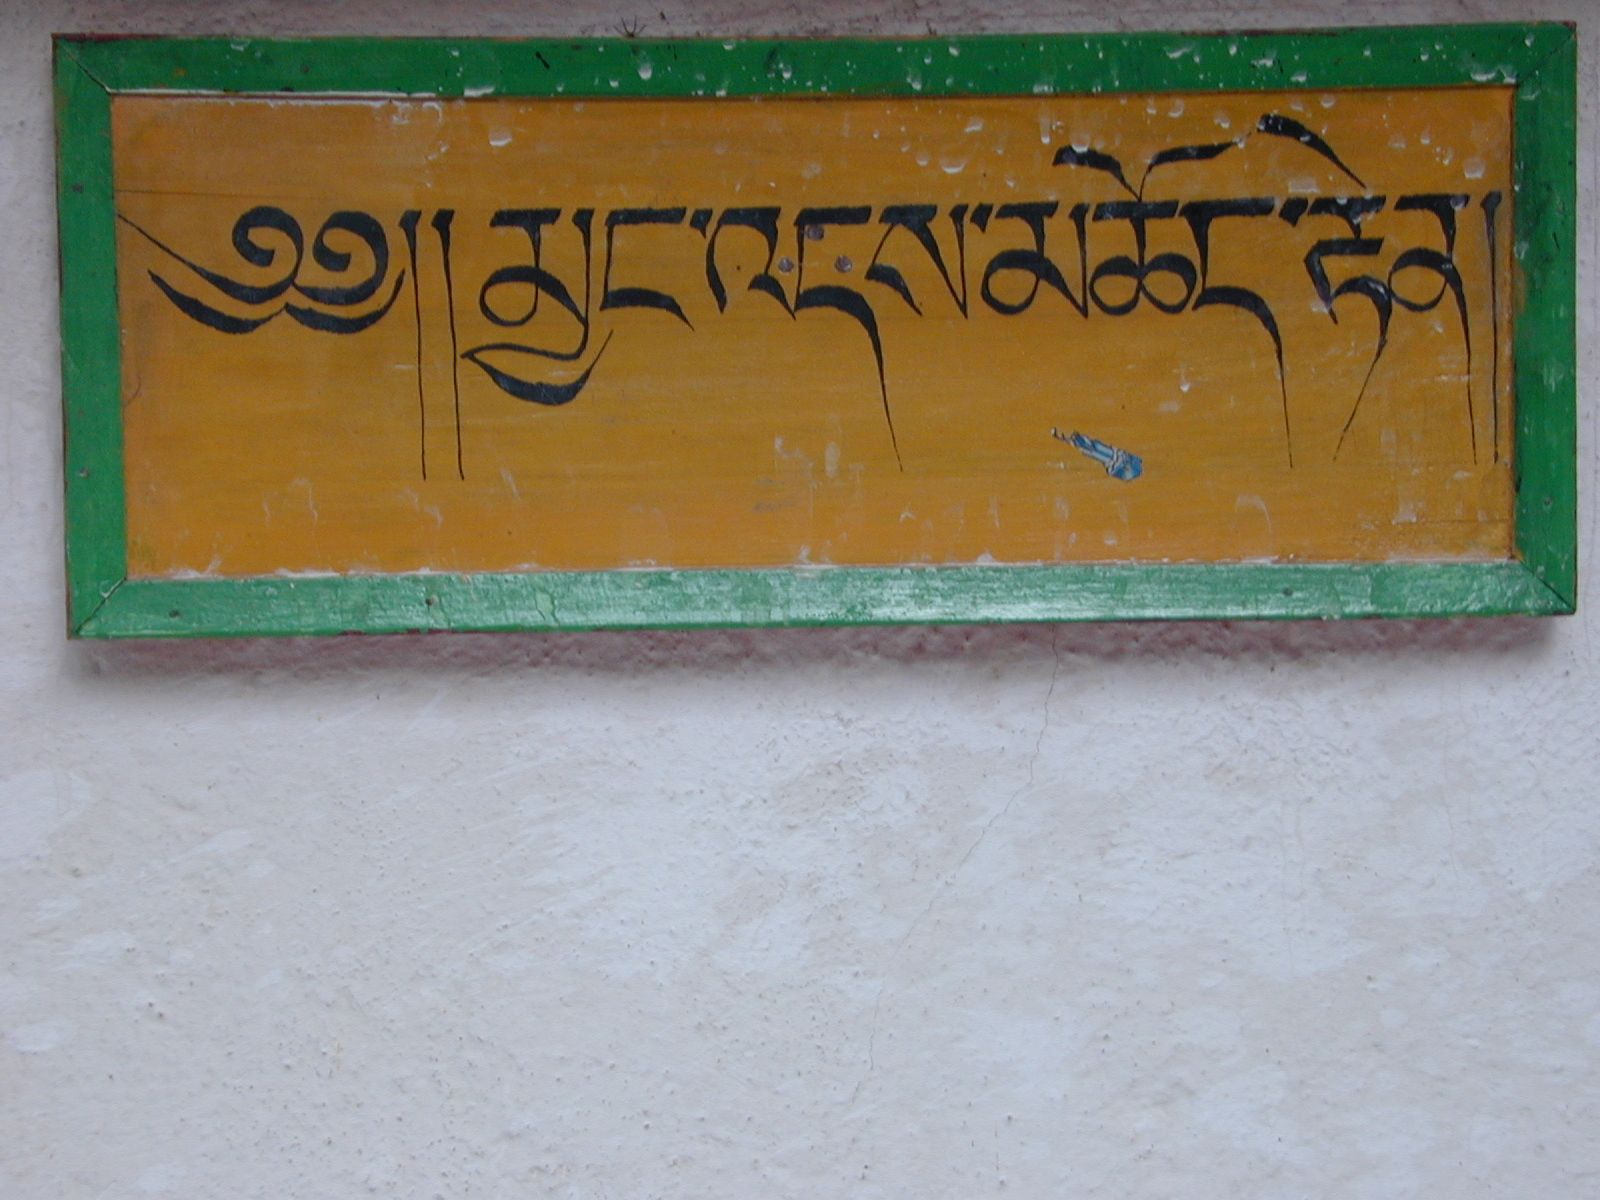 ༄༅།། མྱང་འདས་མཆོད་རྟེན།